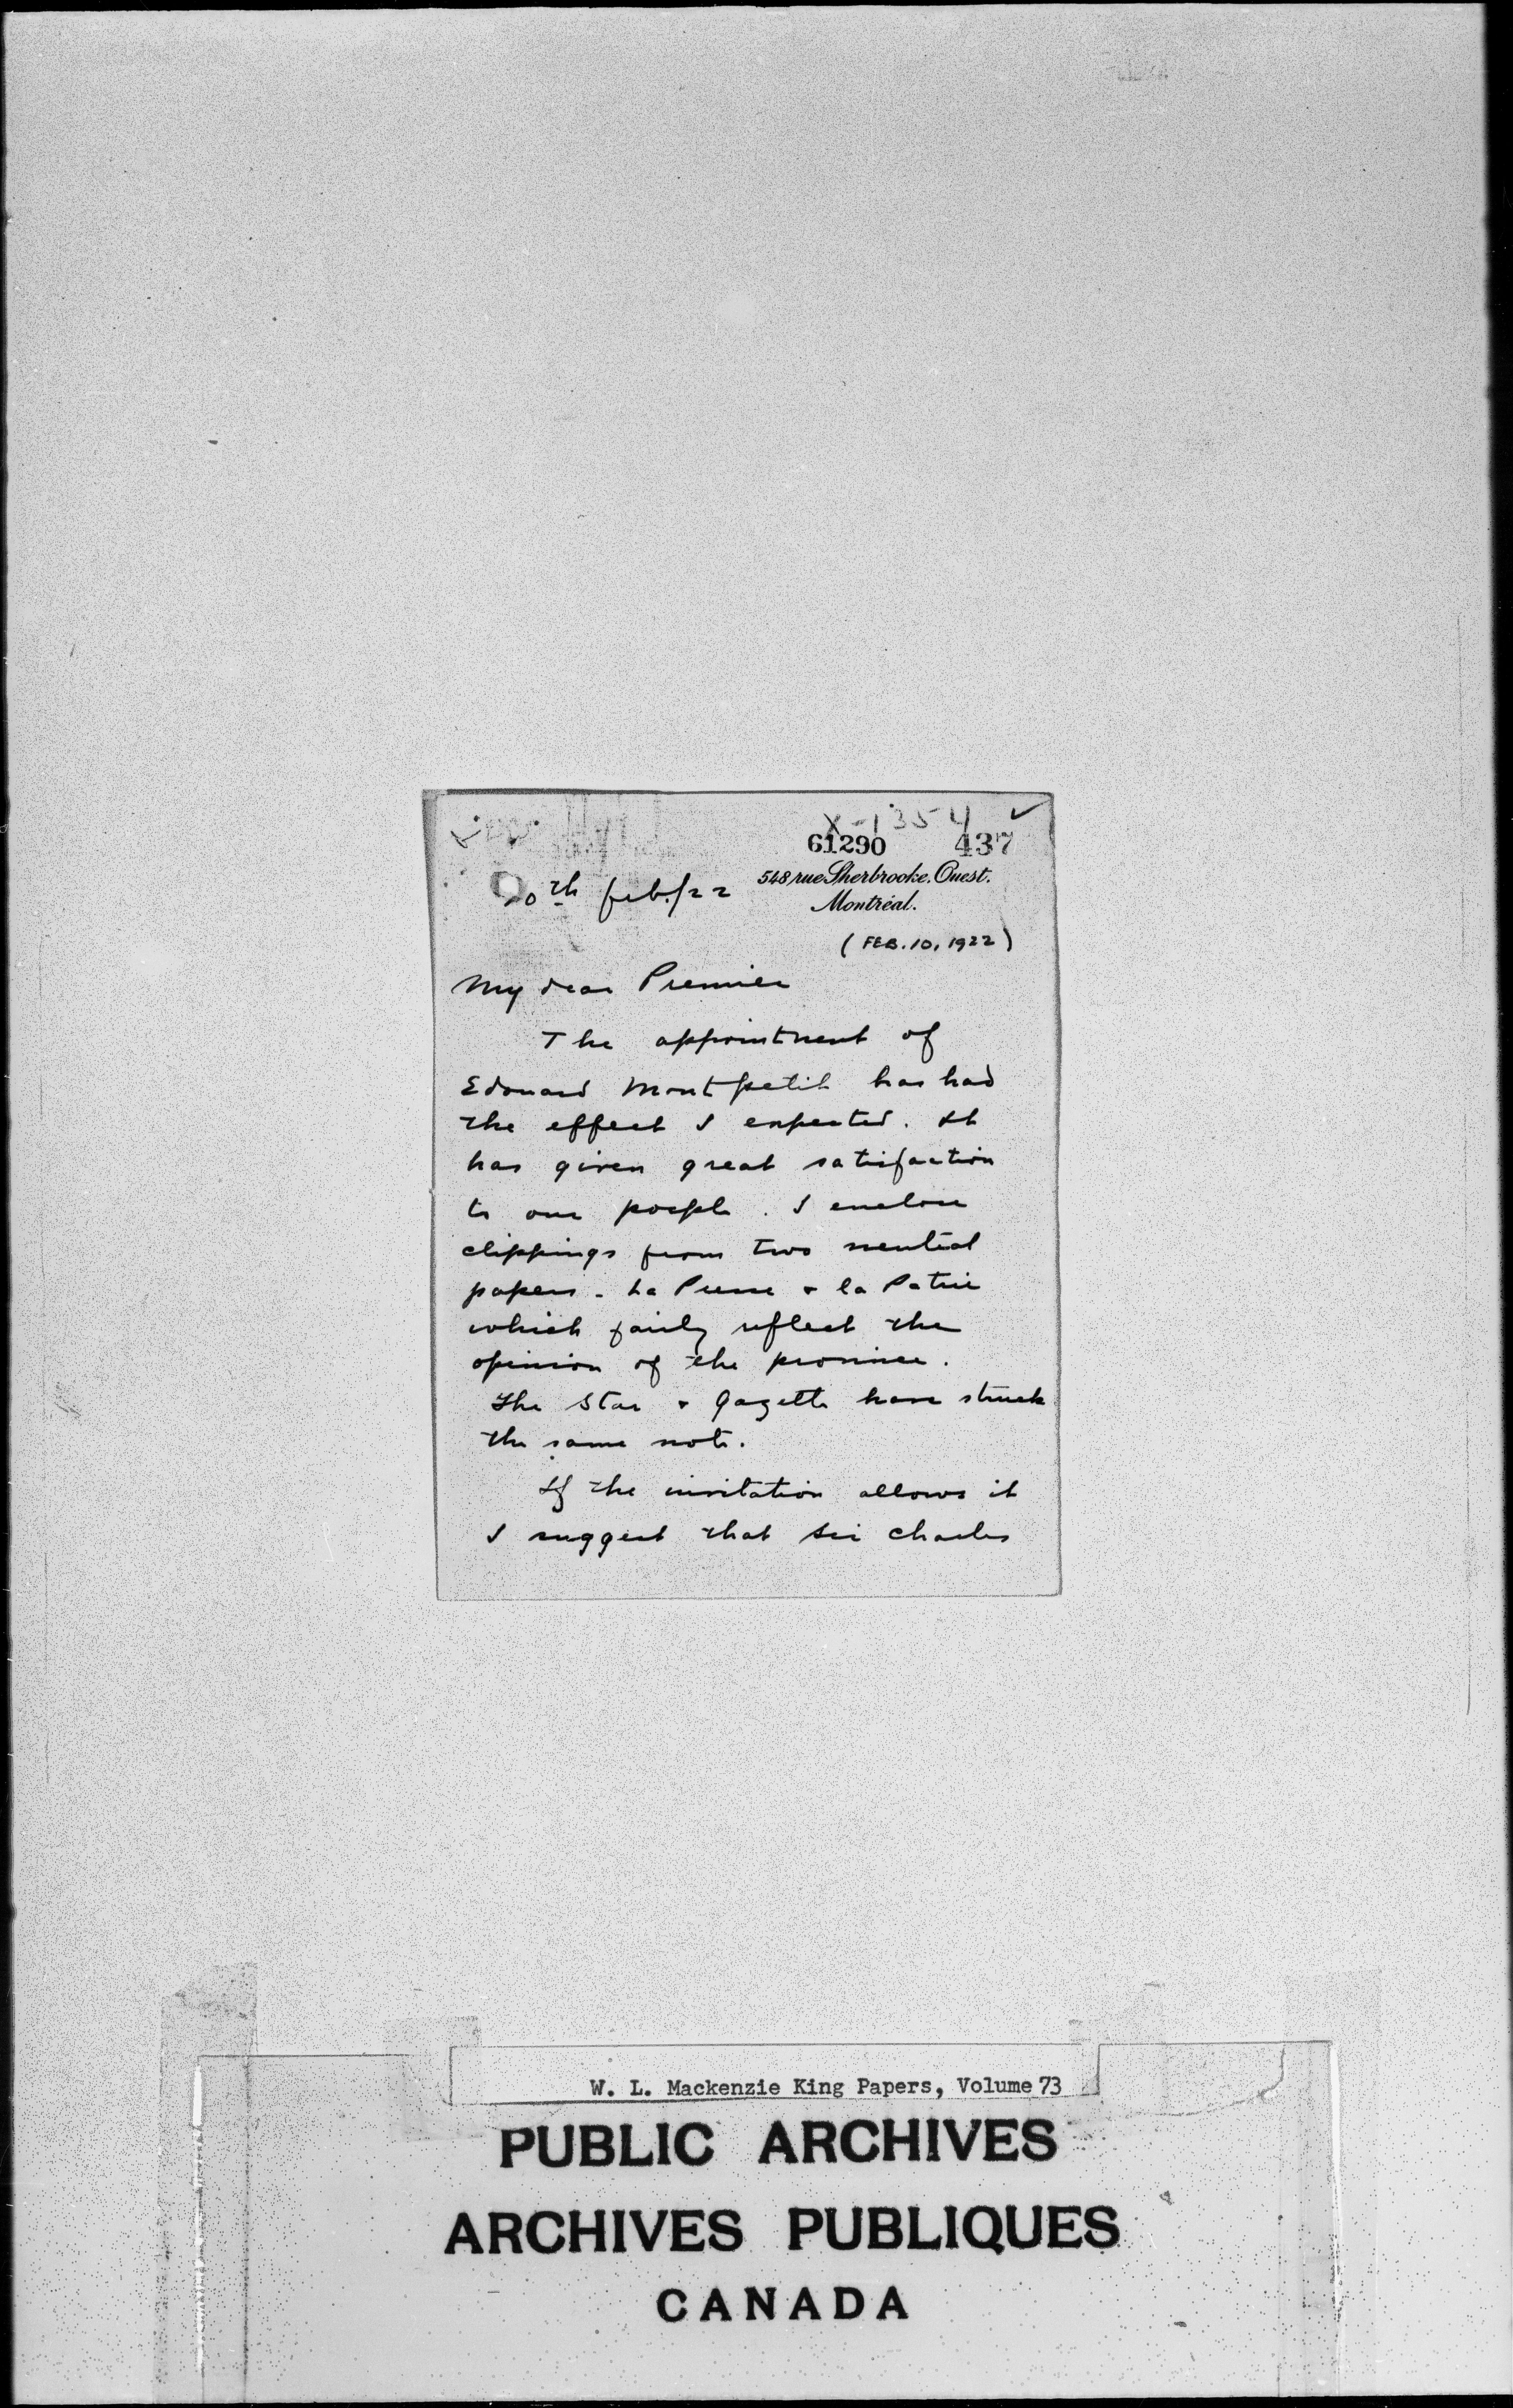 X-1354 ✓
61290 437
10th feb./22
548 rue Sherbrooke. Ouest.
Montréal.
(FEB. 10, 1922)
My dear Premier
The appointment of
Edouard Montpetit has had
the effect I expected. It
has given great satisfaction
to our poeple. I enclose
clippings from two neutral
papers - La Presse & la Patrie
which fairly reflect the
opinion of the province.
The Star & Gazette have struck
the same note.
If the invitation allows it
I suggest that Sir Charles
W. L. Mackenzie King Papers, Volume 73
PUBLIC ARCHIVES
ARCHIVES PUBLIQUES
CANADA